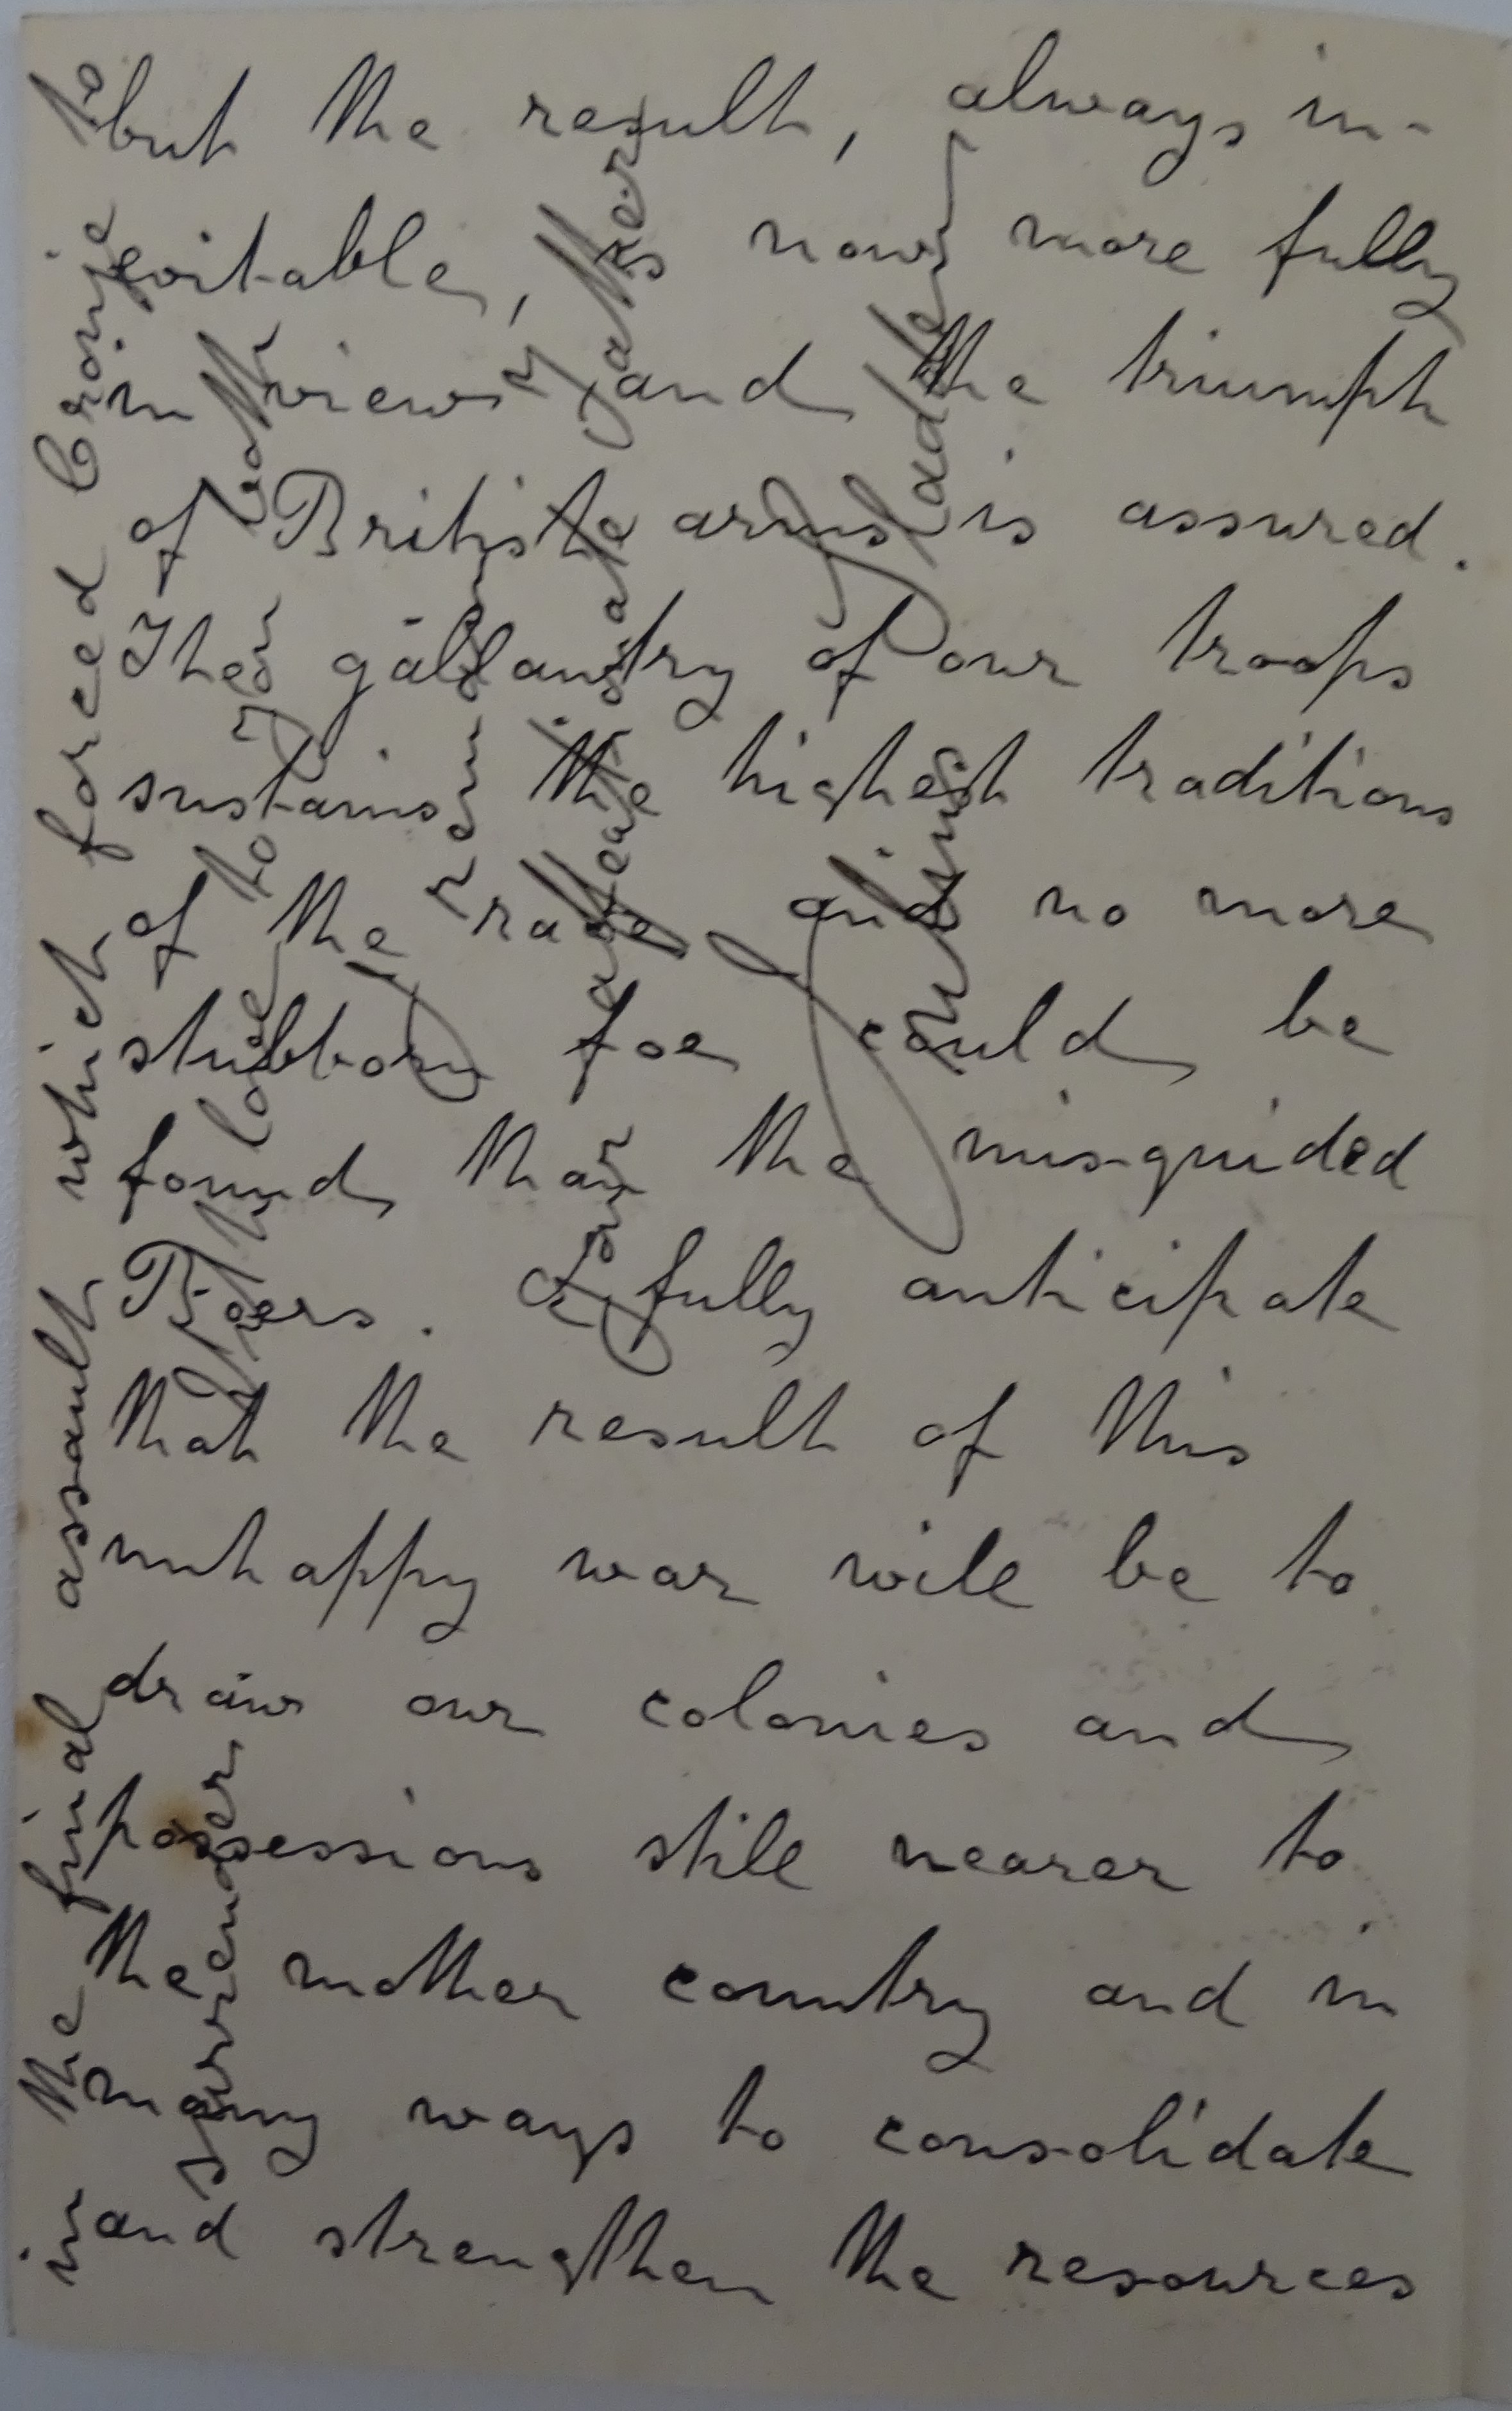 but the result, always in-
evitable, is now more fully
in view and the triumph
of British arms is assured.
The gallantry of our troops
sustains the highest traditions
of the race and no more
stubborn foe could be
found than the misguided
Boers. I fully anticipate
that the result of this
unhappy war will be to
draw our colonies and
possessions still nearer to
the mother country and in
many ways to consolidate
and strengthen the resources
in the final assault which forced Cronje to
surrender
With love to you both
I remain
Your affectionate father
Sadler